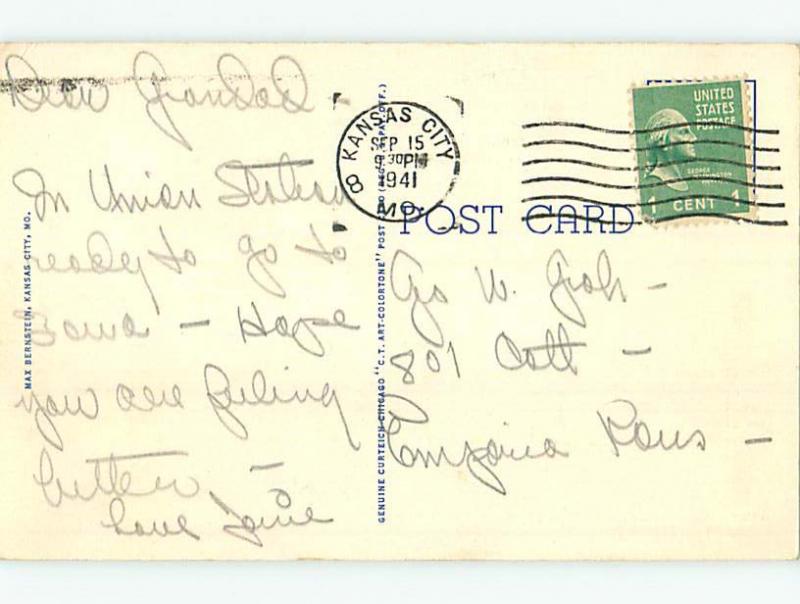 Dear Grandad -
In Union Station
ready to go to
Iowa - Hope
you are feeling
better -
Love Janie
MAX BERNSTEIN, KANSAS CITY, MO.
GENUINE CURTEICH-CHICAGO "C.T. ART-COLORTONE" POST CARD (REG. U.S. PAT. OFF.)
KANSAS CITY
8
SEP 15
9 30 PM
1941
MO.
UNITED
STATES
POSTAGE
GEORGE
WASHINGTON
1 CENT 1
POST CARD
Geo W. Groh -
801 Cott -
Emporia Kans -